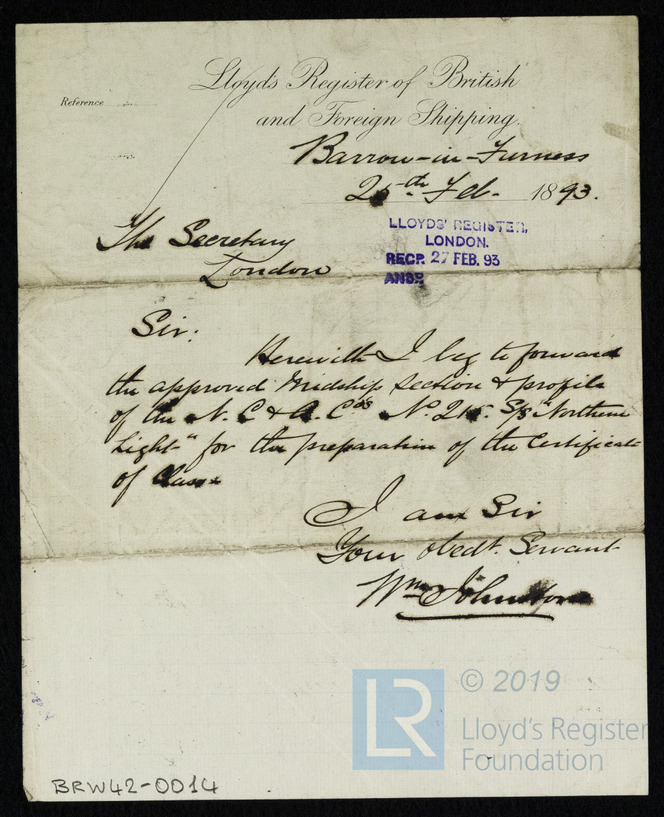 Lloyds Register of British
and Foreign Shipping.
Reference
Barrow-in-Furness
th Feb. 1893.
The Secretary
London
LLOYDS' REGISTER,
LONDON.
RECP. 27 FEB. 93
ANSD
Sir:
Herewith I beg to forward
the approved Midship section & profile
of the N. C & A. Cos No. S/S "Northern
Light" for the preparation of the Certificate
of Class
I am Sir
Your obedt. Servant
Wm Johnstone
LR
© 2019
Lloyd's Register
Foundation
BRW42-0014